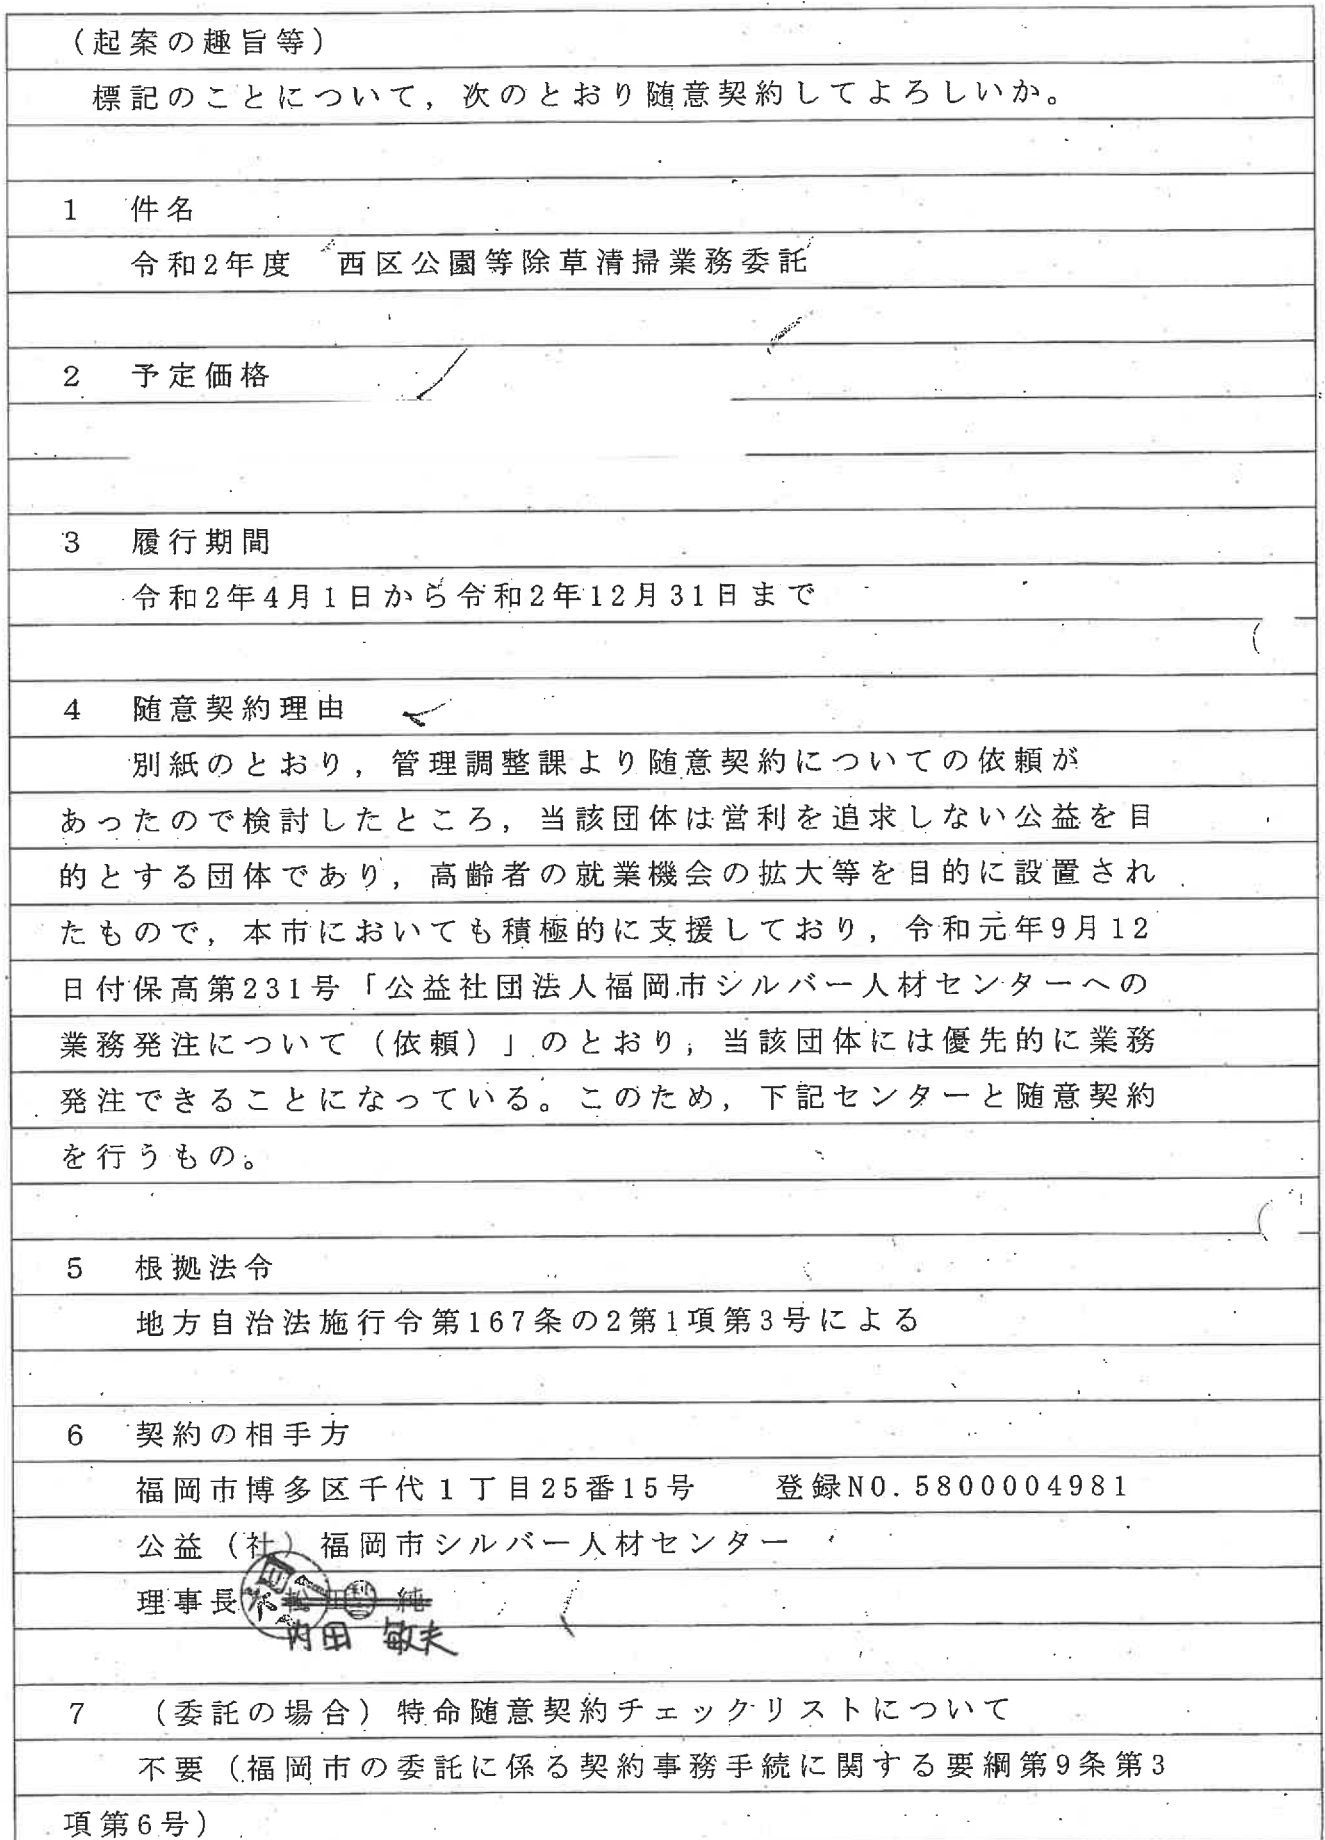 （起案の趣旨等）
標記のことについて，次のとおり随意契約してよろしいか。
1　件名
令和2年度　西区公園等除草清掃業務委託
2　予定価格
3　履行期間
令和2年4月1日から令和2年12月31日まで
4　随意契約理由
別紙のとおり，管理調整課より随意契約についての依頼が
あったので検討したところ，当該団体は営利を追求しない公益を目
的とする団体であり，高齢者の就業機会の拡大等を目的に設置され
たもので，本市においても積極的に支援しており，令和元年9月12
日付保高第231号「公益社団法人福岡市シルバー人材センターへの
業務発注について（依頼）」のとおり，当該団体には優先的に業務
発注できることになっている。このため，下記センターと随意契約
を行うもの。
5　根拠法令
地方自治法施行令第167条の2第1項第3号による
6　契約の相手方
福岡市博多区千代1丁目25番15号　登録NO.5800004981
公益（社）福岡市シルバー人材センター
理事長　純
内田　敏夫
7　（委託の場合）特命随意契約チェックリストについて
不要（福岡市の委託に係る契約事務手続に関する要綱第9条第3
項第6号）